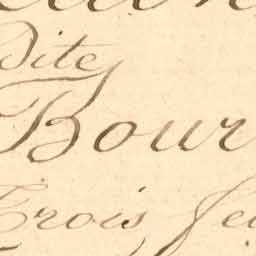 Dite
Bour
Trois feu